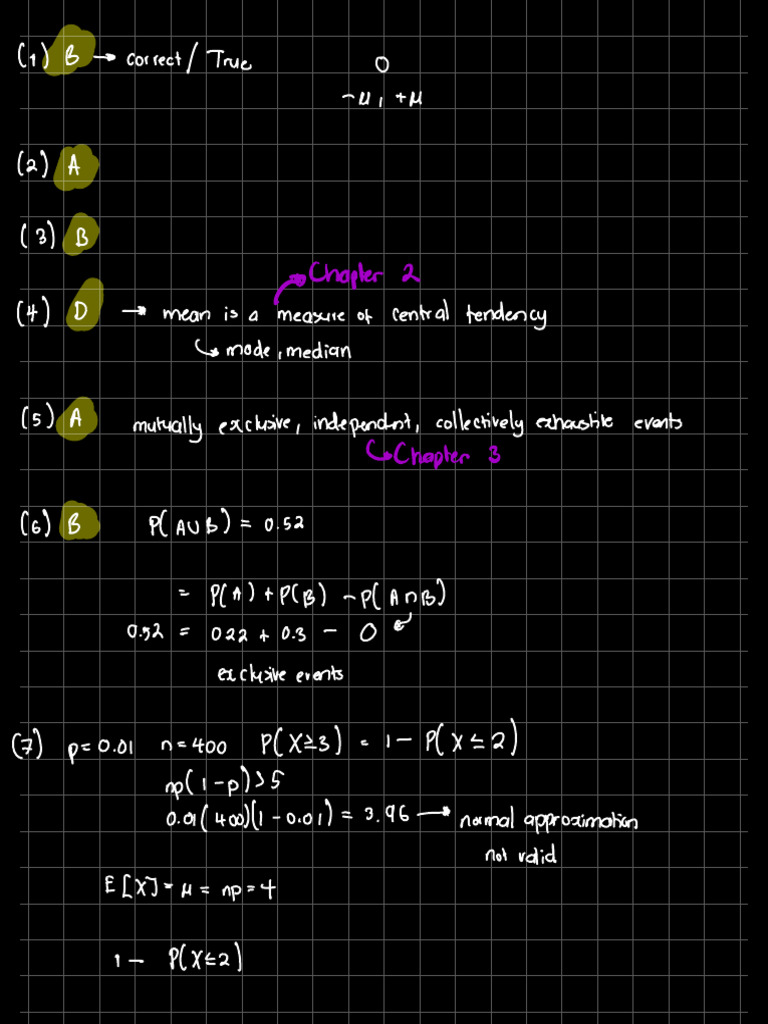 (1) B → correct/True 0
-μ, +μ
(2) A
(3) B
Chapter 2
(4) D → mean is a measure of central tendency
↳ mode, median
(5) A mutually exclusive, independent, collectively exhaustive events
↳ Chapter 3
(6) B P(A∪B) = 0.52
= P(A) + P(B) - P(A∩B)
0.52 = 022 + 0.3 - 0
exclusive events
(7) p=0.01 n=400 P(X≥3) = 1- P(X≤2)
np(1-p)>5
0.01(400)(1-0.01) = 3.96 → normal approximation
not valid
E[X]=μ= np=4
1- P(X≤2)